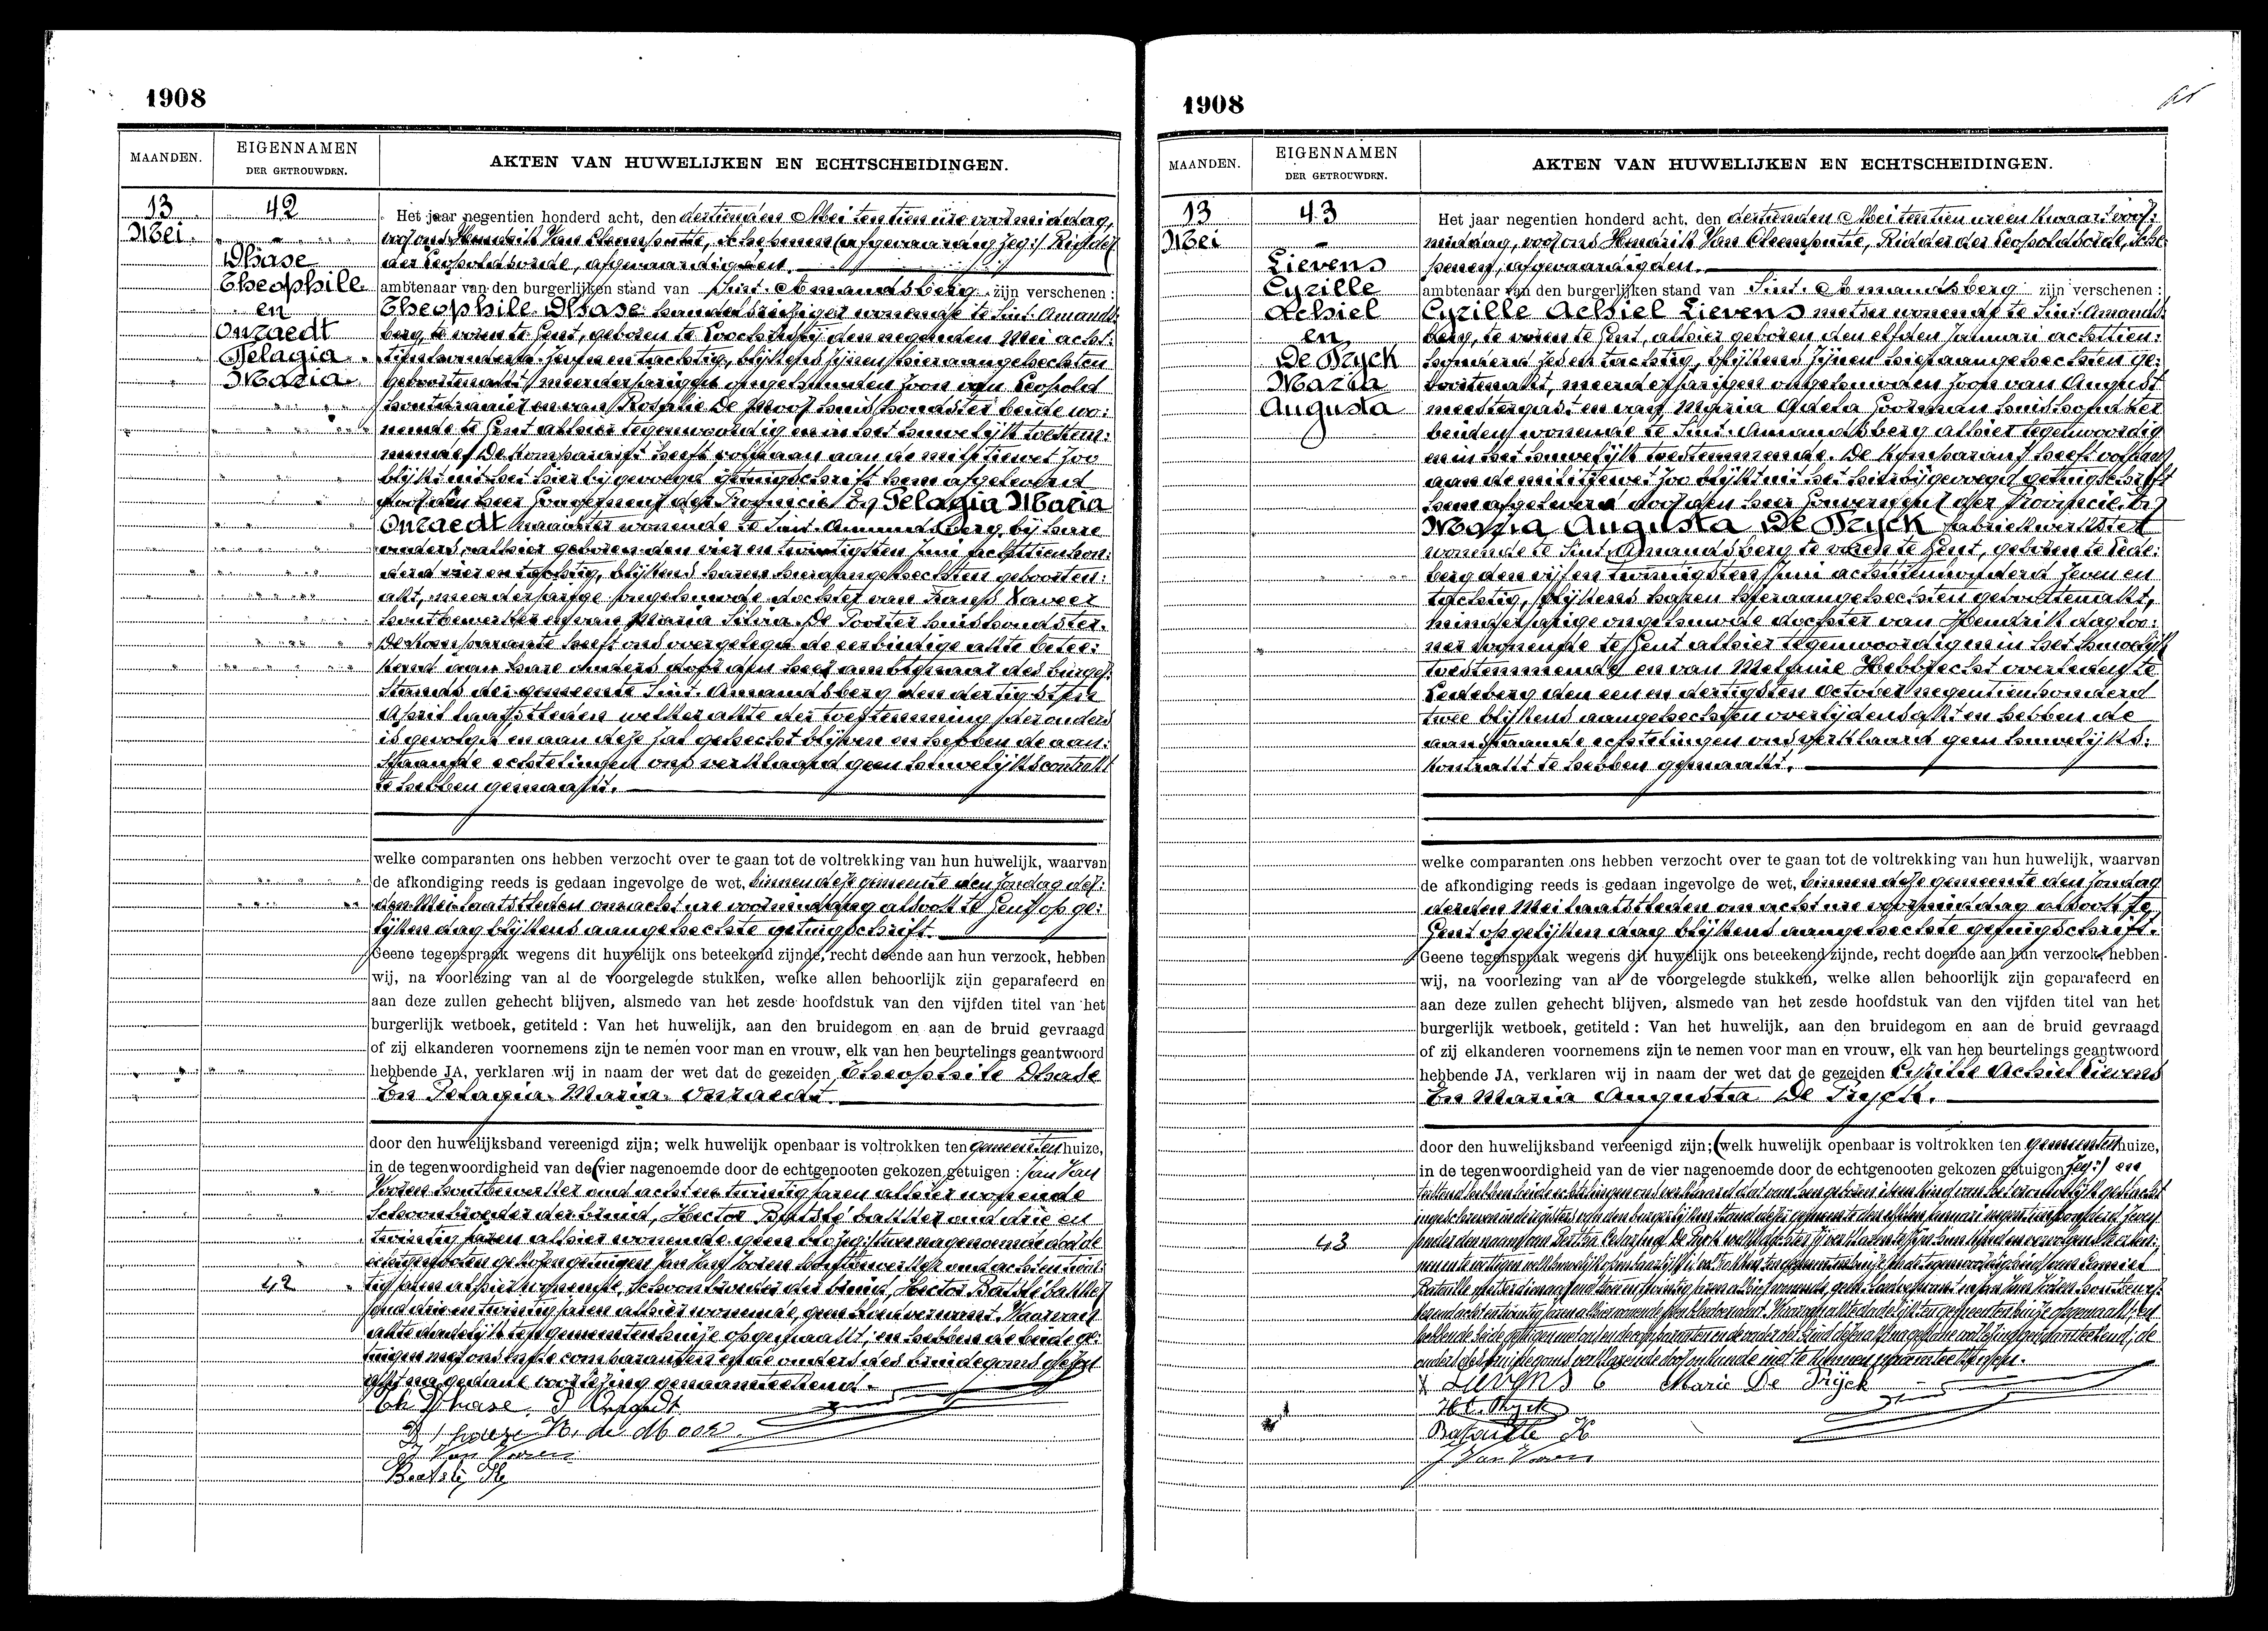 1908
MAANDEN.
EIGENNAMEN
DER GETROUWDEN.
AKTEN VAN HUWELIJKEN EN ECHTSCHEIDINGEN.
13
Mei.
42
Dhase
Theophile
en
Onraedt
Pelagia
Maria
Het jaar negentien honderd acht, den dertienden Mei ten tien ure voormiddag,
voor ons Hendrik Van Cleemputte, schepenen (afgevaardig zeg:) Ridder
der Leopoldsorde, afgevaardigden.
ambtenaar van den burgerlijken stand van Sint-Amandsberg zijn verschenen :
Theophile Dhase handelsreiziger wonende te Sint-Amands
berg, te voren te Gent, geboren te Loochristij den negenden Mei acht:
tienhonderd zeven en tachtig, blijkens zijnen hieraangehechten
geboortenakt, meerderjarigen ongehuwden zoon van Leopold
houtdraaier en van Rosalie De Moor huishoudster beide wo:
nende te Gent alhier tegenwoordig en in het huwelijk toestem:
mende. De komparant heeft voldaan aan de militiewet zoo
blijkt uit het hierbij gevoegd getuigschrift hem afgeleverd
door den heer Gouverneur der Provincie. En Pelagia Maria
Onraedt naaister wonende te Sint-Amandsberg, bij hare
ouders, alhier geboren den vier en twintigsten Juni achttienhon:
derd vier en tachtig, blijkens haren hieraangehechten geboorten:
akt, meerderjarige ongehuwde dochter van Frans Xaveer
houtbewerker en van Maria Silvia De Poorter huishoudster.
De komparante heeft ons overgelegd de eerbiedige akte betee:
kend aan hare ouders door den heer ambtenaar des burger:
stands der gemeente Sint-Amandsberg den dertigsten
April laatstleden welker akte der toestemming der ouders
is gevolgd en aan deze zal gehecht blijven en hebben de aan:
staande echtelingen ons verklaard geen huwelijkscontrakt
te hebben gemaakt.
welke comparanten ons hebben verzocht over te gaan tot de voltrekking van hun huwelijk, waarvan
de afkondiging reeds is gedaan ingevolge de wet, binnen deze gemeente den Zondag der:
den Mei laatstleden om acht ure voormiddag alsook te Gent op ge:
lijken dag blijkens aangehechte getuigschrift.
Geene tegenspraak wegens dit huwelijk ons beteekend zijnde, recht doende aan hun verzoek, hebben
wij, na voorlezing van al de voorgelegde stukken, welke allen behoorlijk zijn geparafeerd en
aan deze zullen gehecht blijven, alsmede van het zesde hoofdstuk van den vijfden titel van het
burgerlijk wetboek, getiteld : Van het huwelijk, aan den bruidegom en aan de bruid gevraagd
of zij elkanderen voornemens zijn te nemen voor man en vrouw, elk van hen beurtelings geantwoord
hebbende JA, verklaren wij in naam der wet dat de gezeiden Theophile Dhase
En Pelagia Maria Onraedt
door den huwelijksband vereenigd zijn; welk huwelijk openbaar is voltrokken ten gemeentenhuize,
in de tegenwoordigheid van de (vier nagenoemde door de echtgenooten gekozen getuigen : Jan Van
Vooren houtbewerker oud acht en twintig jaren alhier wonende
schoonbroeder der bruid, Hector Batslé bakker oud drie en
twintig jaren alhier wonende geen zeg:) twee nagenoemde door de
echtgenooten gekozen getuigen Jan Van Vooren houtbewerker oud acht en twin:
42
tig jaren alhier wonende, schoonbroeder der bruid, Hector Batslé bakker
oud drie en twintig jaren alhier wonende, geen bloedverwant. Waarvan
akte dadelijk ten gemeentenhuize opgemaakt; en hebben de beide ge:
tuigen met ons en de comparanten en de ouders des bruidegoms dezen
akt na gedane voorlezing genaamteekend.
Th Dhase P Onraedt
R. de Moor
J Van Vooren
Batslé H
1908
MAANDEN.
EIGENNAMEN
DER GETROUWDEN.
AKTEN VAN HUWELIJKEN EN ECHTSCHEIDINGEN.
13
Mei
43
Lievens
Cyrille
Achiel
en
De Pryck
Maria
Augusta
Het jaar negentien honderd acht, den dertienden Mei ten tien ure en kwaart voor:
middag, voor ons Hendrik Van Cleemputte, Ridder der Leopoldsorde, sche
penen, afgevaardigden.
ambtenaar van den burgerlijken stand van Sint-Amandsberg zijn verschenen :
Cyrille Achiel Lievens metser wonende te Sint-Amands
berg, te voren te Gent, alhier geboren den elfden Januari achttien:
honderd zes en tachtig, blijkens zijnen hieraangehechten ge:
boortenakt, meerderjarigen ongehuwden zoon van August
meestergast en van Maria Adela Goorman huishoudster
beiden wonende te Sint-Amandsberg alhier tegenwoordig
en in het huwelijk toestemmende. De komparant heeft voldaan
aan de militiewet zoo blijkt uit het hierbij gevoegd getuigschrift
hem afgeleverd door den heer Gouverneur der Provincie. En
Maria Augusta De Pryck fabriekwerkster
wonende te Sint-Amandsberg te voren te Gent, geboren te Lede:
berg den vijf en twintigsten Juni achttienhonderd zeven en
tachtig, blijkens haren hieraangehechten geboortenakt,
minderjarige ongehuwde dochter van Hendrik dagloo:
ner wonende te Gent alhier tegenwoordig en in het huwelijk
toestemmende en van Melanie Hebbrecht overleden te
Ledeberg den een en dertigsten October negentienhonderd
twee blijkens aangehechten overlijdensakt en hebben de
aanstaande echtelingen ons verklaard geen huwelijks:
kontrakt te hebben gemaakt.
welke comparanten ons hebben verzocht over te gaan tot de voltrekking van hun huwelijk, waarvan
de afkondiging reeds is gedaan ingevolge de wet, binnen deze gemeente den Zondag
derden Mei laatstleden om acht ure voormiddag alsook te
Gent op gelijken dag blijkens aangehechte getuigschrift.
Geene tegenspraak wegens dit huwelijk ons beteekend zijnde, recht doende aan hun verzoek, hebben
wij, na voorlezing van al de voorgelegde stukken, welke allen behoorlijk zijn geparafeerd en
aan deze zullen gehecht blijven, alsmede van het zesde hoofdstuk van den vijfden titel van het
burgerlijk wetboek, getiteld : Van het huwelijk, aan den bruidegom en aan de bruid gevraagd
of zij elkanderen voornemens zijn te nemen voor man en vrouw, elk van hen beurtelings geantwoord
hebbende JA, verklaren wij in naam der wet dat de gezeiden Cyrille Achiel Lievens
En Maria Augusta De Pryck.
door den huwelijksband vereenigd zijn; (welk huwelijk openbaar is voltrokken ten gemeentenhuize,
in de tegenwoordigheid van de vier nagenoemde door de echtgenooten gekozen getuigen zeg:) en
terstond hebben beide echtelingen ons verklaard dat van hen geboren is een kind van het vrouwelijk geslacht
ingeschreven in de registers van den burgerlijken stand dezer gemeente den Januari negentienhonderd zeven
43
onder den naam van De Pryck
wettigen welk huwelijk openbaar is voltrokken ten gemeentenhuize in de tegenwoordigheid van Camiel
Bataille oud twintig jaren alhier wonende, geen bloedverwant en Jan Van Vooren houtbewer
ker oud acht en twintig jaren alhier wonende geen bloedverwant. Waarvan akte dadelijk ten gemeentenhuize opgemaakt; en
hebben beide getuigen met ons en de comparanten en de vader der bruid dezen akt na gedane voorlezing genaamteekend; de
ouders des bruidegoms verklarende door onkunde niet te kunnen naamteekenen.
Lievens C Marie De Pryck
Bataille K
J Van Vooren